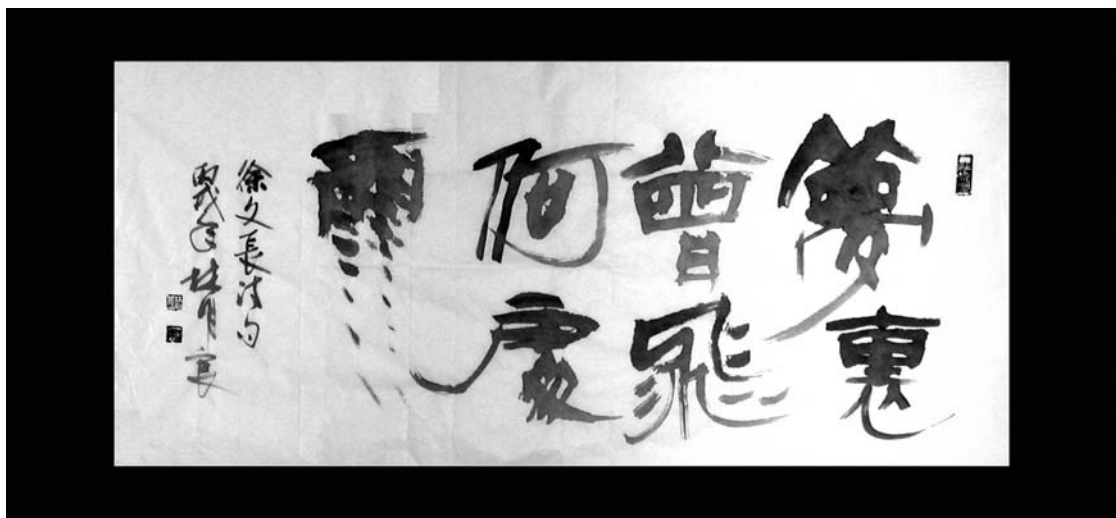 夢裏
曾飛
何處
雨
徐文長詩句
丙戌年林